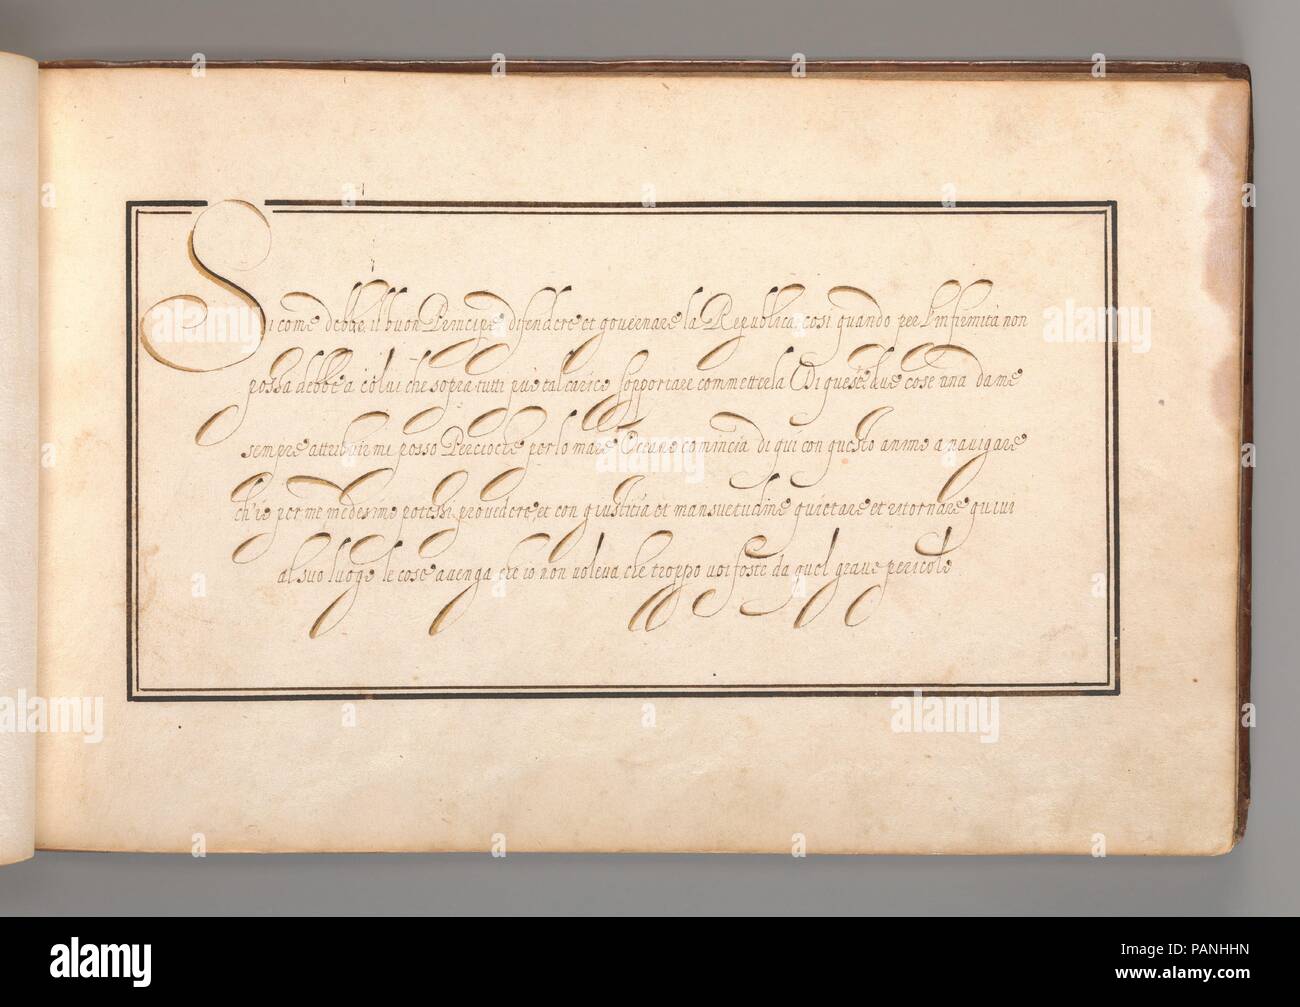 Si come debbe il buon Principe difendere et governare la Republica, cosi quando per l'infirmità non
possa debbe a colui che sopra tutti piu è tal carico sopportare commetterla Di queste due cose una da me
sempre attribuirmi posso Percioche per lo mare Oceano comincia di qui con questo animo a navigare
ch'io per me medesimo potessi provedere, et con giustitia et mansuetudine quietare et ritornare quivi
al suo luogo le cose avenga che io non voleva che troppo voi foste da quel grave pericolo
alamy
alamy stock photo
PANHHN
www.alamy.com